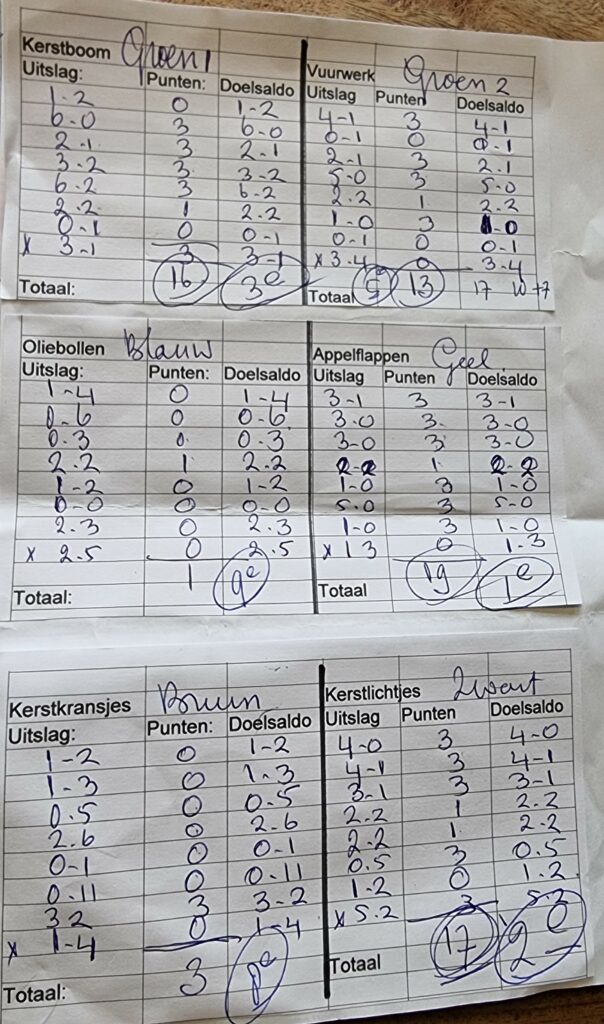 Kerstboom Groen 1
Uitslag: Punten: Doelsaldo
1-2 0 1-2
6-0 3 6-0
2-1 3 2-1
3-2 3 3-2
6-2 3 6-2
2-2 1 2.2
0-1 0 0-1
x 3-1 3 3-1
Totaal: 16 3e
Vuurwerk Groen 2
Uitslag Punten Doelsaldo
4-1 3 4-1
0-1 0 0-1
2-1 3 2.1
5-0 3 5.0
2.2 1 2-2
1-0 3 1-0
0-1 0 0-1
x 3.4 0 3-4
Totaal 13 17
Oliebollen Blauw
Uitslag: Punten: Doelsaldo
1-4 0 1-4
0-6 0 0-6
0.3 0 0.3
2.2 1 2.2
1-2 0 1-2
0-0 0 0-0
2.3 0 2.3
x 2.5 0 2.5
Totaal: 1 9e
Appelflappen Geel
Uitslag Punten Doelsaldo
3-1 3 3-1
3.0 3 3-0
3-0 3 3-0
2-2 1 2-2
1-0 3 1-0
5.0 3 5-0
1-0 3 1-0
x 1 3 0 1.3
Totaal 19 1e
Kerstkransjes Bruin
Uitslag: Punten: Doelsaldo
1-2 0 1-2
1-3 0 1.3
0.5 0 0.5
2.6 0 2-6
0-1 0 0-1
0.11 0 0.11
3 2 3 3-2
x 1-4 0 1-4
Totaal: 3
Kerstlichtjes Zwart
Uitslag Punten Doelsaldo
4-0 3 4-0
4-1 3 4-1
3-1 3 3-1
2.2 1 2.2
2.2 1 2.2
0.5 3 0.5
1.2 0 1.2
x 5.2 3 5.2
Totaal 17 2e